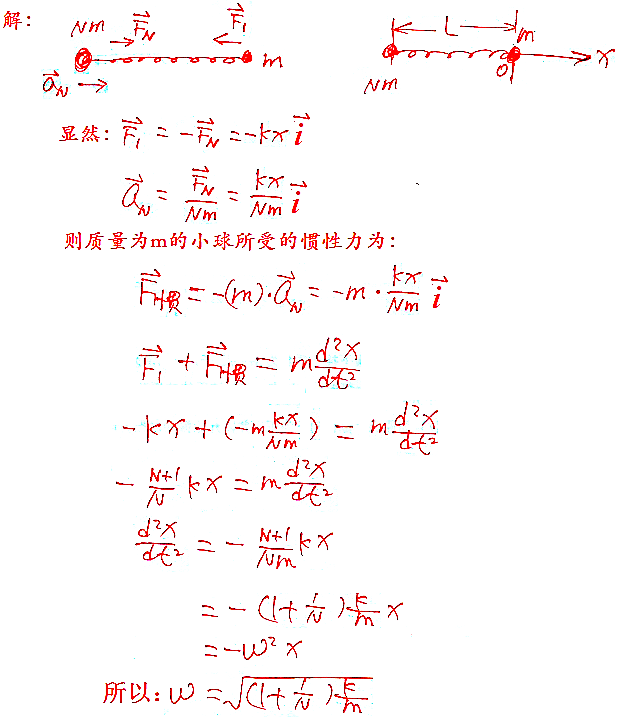 解:
Nm F⃗_N F⃗₁ m
a⃗_N
L m
Nm O x
显然: F⃗₁ = -F⃗_N = -kx i⃗
a⃗_N = F⃗_N/Nm = kx/Nm i⃗
则质量为m的小球所受的惯性力为:
F⃗惯 = -(m)·a⃗_N = -m · kx/Nm i⃗
F⃗₁ + F⃗惯 = m d²x/dt²
-kx + (-m kx/Nm) = m d²x/dt²
- N+1/N kx = m d²x/dt²
d²x/dt² = - N+1/Nm kx
= -(1+1/N) k/m x
= -ω² x
所以: ω = √(1+1/N) k/m